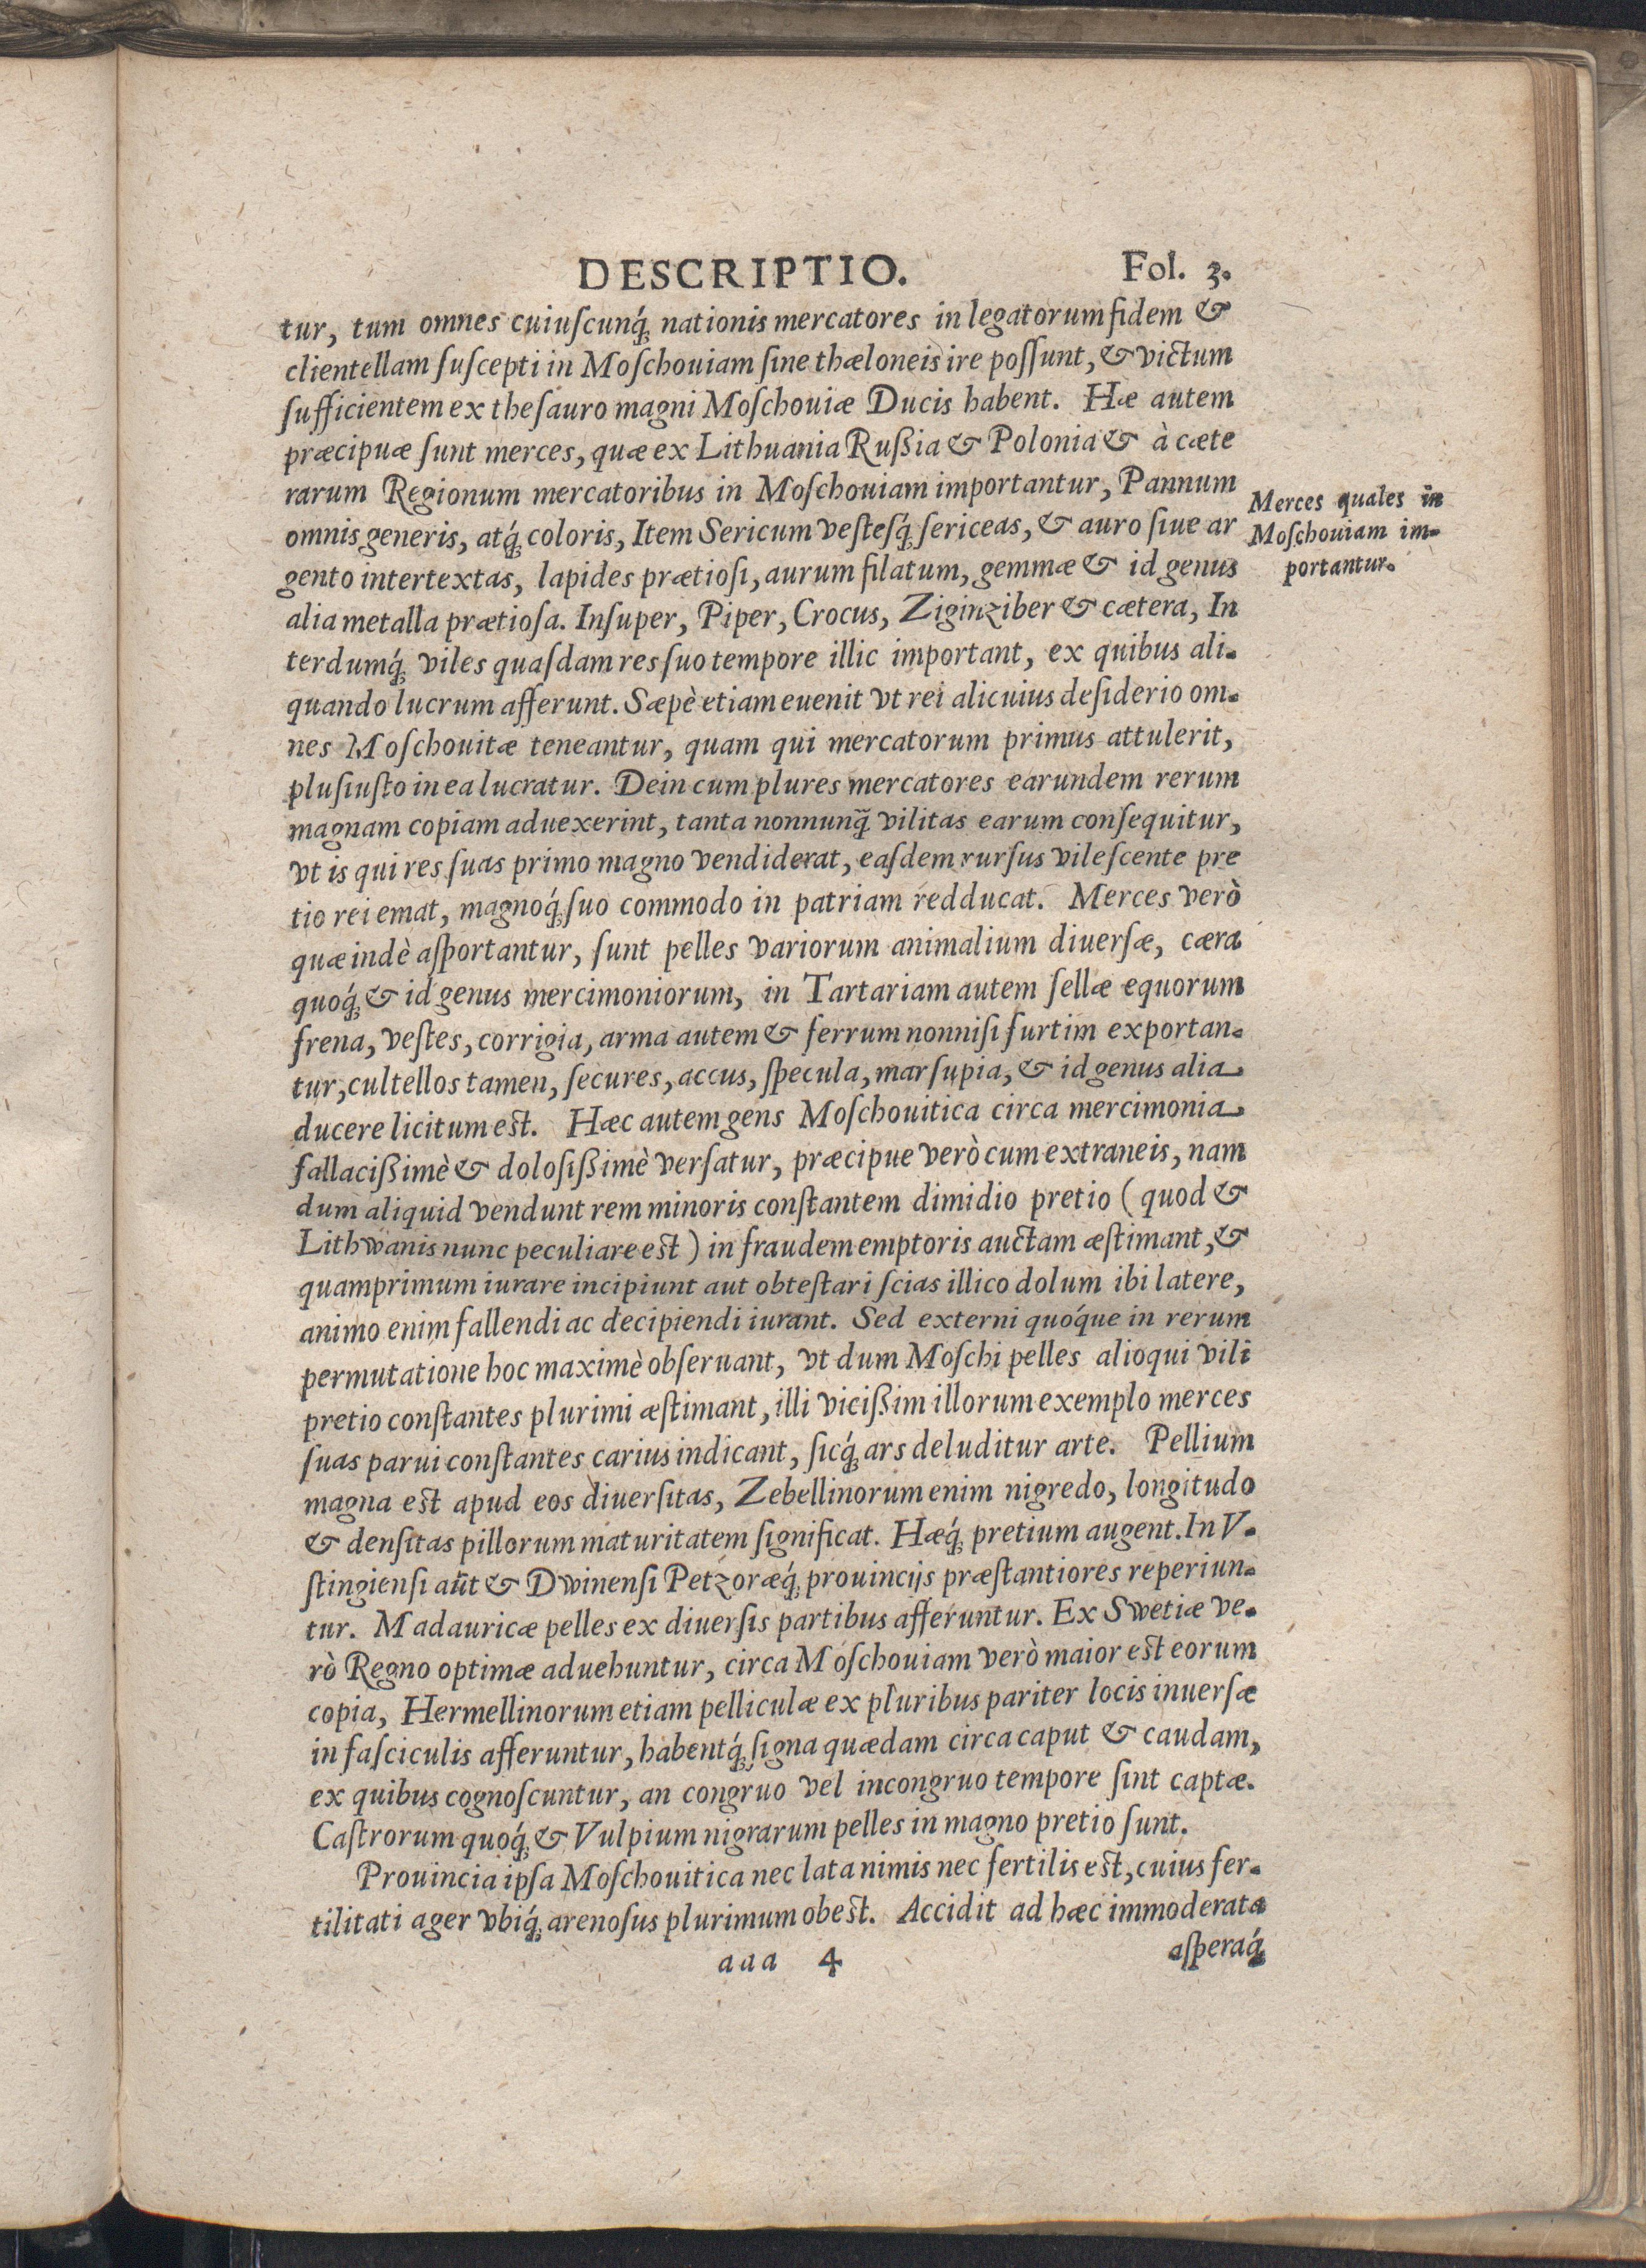 DESCRIPTIO. Fol. 3.
tur, tum omnes cuiuſcunq́; nationis mercatores in legatorum fidem &
clientellam ſuſcepti in Moſchouiam ſine thæloneis ire poſſunt, & victum
ſufficientem ex theſauro magni Moſchouiæ Ducis habent. Hæ autem
præcipuæ ſunt merces, quæ ex Lithuania Rußia & Polonia & à cæte
rarum Regionum mercatoribus in Moſchouiam importantur, Pannum
omnis generis, atq́; coloris, Item Sericum veſteſq́; ſericeas, & auro ſiue ar
gento intertextas, lapides prætioſi, aurum filatum, gemmæ & id genus
alia metalla prætioſa. Inſuper, Piper, Crocus, Ziginziber & cætera, In
terdumq́; viles quaſdam res ſuo tempore illic important, ex quibus ali-
quando lucrum afferunt. Sæpè etiam euenit vt rei alicuius deſiderio om-
nes Moſchouitæ teneantur, quam qui mercatorum primus attulerit,
plus iuſto in ea lucratur. Dein cum plures mercatores earundem rerum
magnam copiam aduexerint, tanta nonnunq̃ vilitas earum conſequitur,
vt is qui res ſuas primo magno vendiderat, eaſdem rurſus vileſcente pre
tio rei emat, magnoq́; ſuo commodo in patriam redducat. Merces verò
quæ indè aſportantur, ſunt pelles variorum animalium diuerſæ, cæra
quoq́; & id genus mercimoniorum, in Tartariam autem ſellæ equorum
frena, veſtes, corrigia, arma autem & ferrum nonniſi furtim exportan-
tur, cultellos tamen, ſecures, accus, ſpecula, marſupia, & id genus alia
ducere licitum est. Hæc autem gens Moſchouitica circa mercimonia
fallacißimè & doloſißimè verſatur, præcipue verò cum extraneis, nam
dum aliquid vendunt rem minoris conſtantem dimidio pretio (quod &
Lithwanis nunc peculiare est) in fraudem emptoris auctam æſtimant, &
quamprimum iurare incipiunt aut obteſtari ſcias illico dolum ibi latere,
animo enim fallendi ac decipiendi iurant. Sed externi quóque in rerum
permutatione hoc maximè obſeruant, vt dum Moſchi pelles alioqui vili
pretio conſtantes plurimi æſtimant, illi vicißim illorum exemplo merces
ſuas parui conſtantes carius indicant, ſicq́; ars deluditur arte. Pellium
magna est apud eos diuerſitas, Zebellinorum enim nigredo, longitudo
& denſitas pillorum maturitatem ſignificat. Hæq́; pretium augent. In V-
ſtingienſi aūt & Dwinenſi Petzoræq́; prouincijs præſtantiores reperiun-
tur. Madauricæ pelles ex diuerſis partibus afferuntur. Ex Swetiæ ve-
rò Regno optimæ aduehuntur, circa Moſchouiam verò maior est eorum
copia, Hermellinorum etiam pelliculæ ex pluribus pariter locis inuerſæ
in faſciculis afferuntur, habentq́; ſigna quædam circa caput & caudam,
ex quibus cognoſcuntur, an congruo vel incongruo tempore ſint captæ.
Caſtrorum quoq́; & Vulpium nigrarum pelles in magno pretio ſunt.
Prouincia ipſa Moſchouitica nec lata nimis nec fertilis est, cuius fer-
tilitati ager vbiq́; arenoſus plurimum obest. Accidit ad hæc immoderata
aaa 4 aſperaq́;
Merces quales in
Moſchouiam im-
portantur.